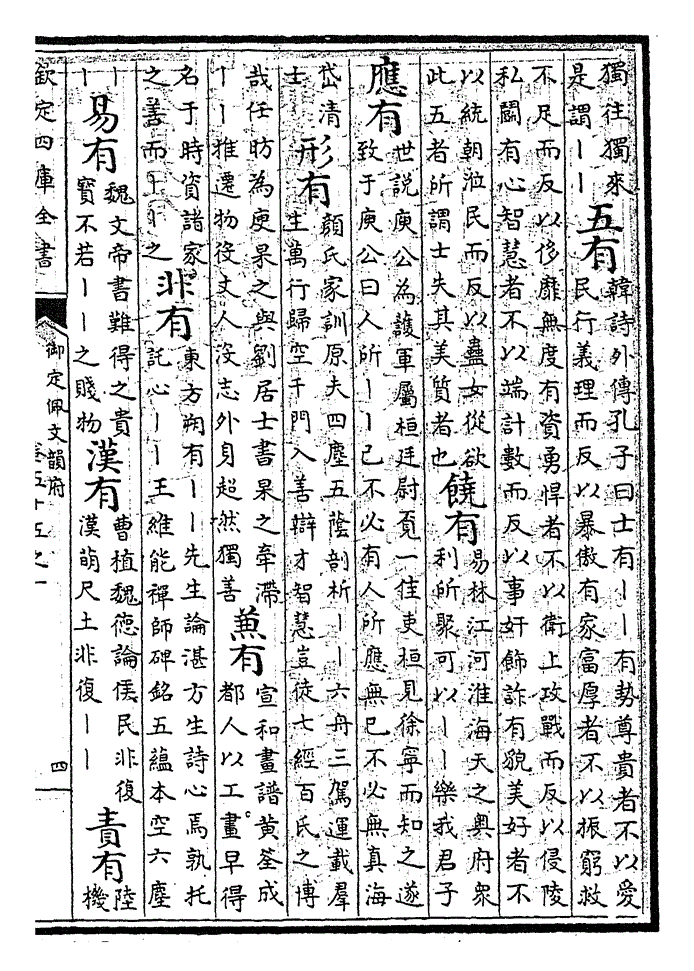 獨往獨來
是謂｜｜
五有
韓詩外傳孔子曰士有｜｜有勢尊貴者不以愛
民行義理而反以暴傲有家富厚者不以振窮救
不足而反以侈靡無度有資勇悍者不以衛上攻戰而反以侵陵
私闘有心智慧者不以端計數而反以事奸飾詐有貌美好者不
以統朝涖民而反以蠱女從欲
此五者所謂士失其美質者也
饒有
易林江河淮海天之奥府衆
利所聚可以｜｜樂我君子
應有
世説庾公為護軍屬桓廷尉覓一佳吏桓見徐寧而知之遂
致于庾公曰人所｜｜已不必有人所應無已不必無真海
岱清
士｜
形有
顔氏家訓原夫四塵五蔭剖析｜｜六舟三駕運載羣
生萬行歸空千門入善辯才智慧豈徒七經百氏之博
哉任昉為庾杲之與劉居士書杲之牽滯
｜｜推遷物役丈人没志外身超然獨善
兼有
宣和畫譜黄筌成
都人以工畫早得
名于時資諸家
之善而｜｜之
非有
東方朔有｜｜先生論湛方生詩心焉孰托
託心｜｜王維能禪師碑銘五藴本空六塵
｜
｜
易有
魏文帝書難得之貴
寶不若｜｜之賤物
漢有
曹植魏德論侯民非復
漢萌尺土非復｜｜
責有
陸
機
欽定四庫全書
御定佩文韻府
卷五十五之一
四